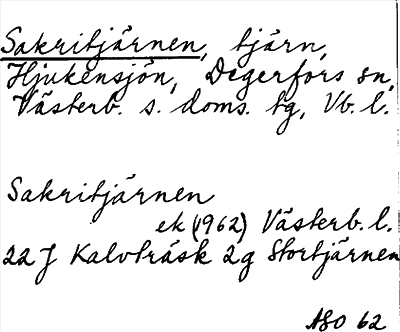 Sakritjärnen, tjärn,
Hjukensjön, Degerfors sn,
Västerb. s. doms. tg, Vb. l.
Sakritjärnen
ek (1962) Västerb. l.
22 J Kalvträsk 2g Stortjärnen
ASO 62